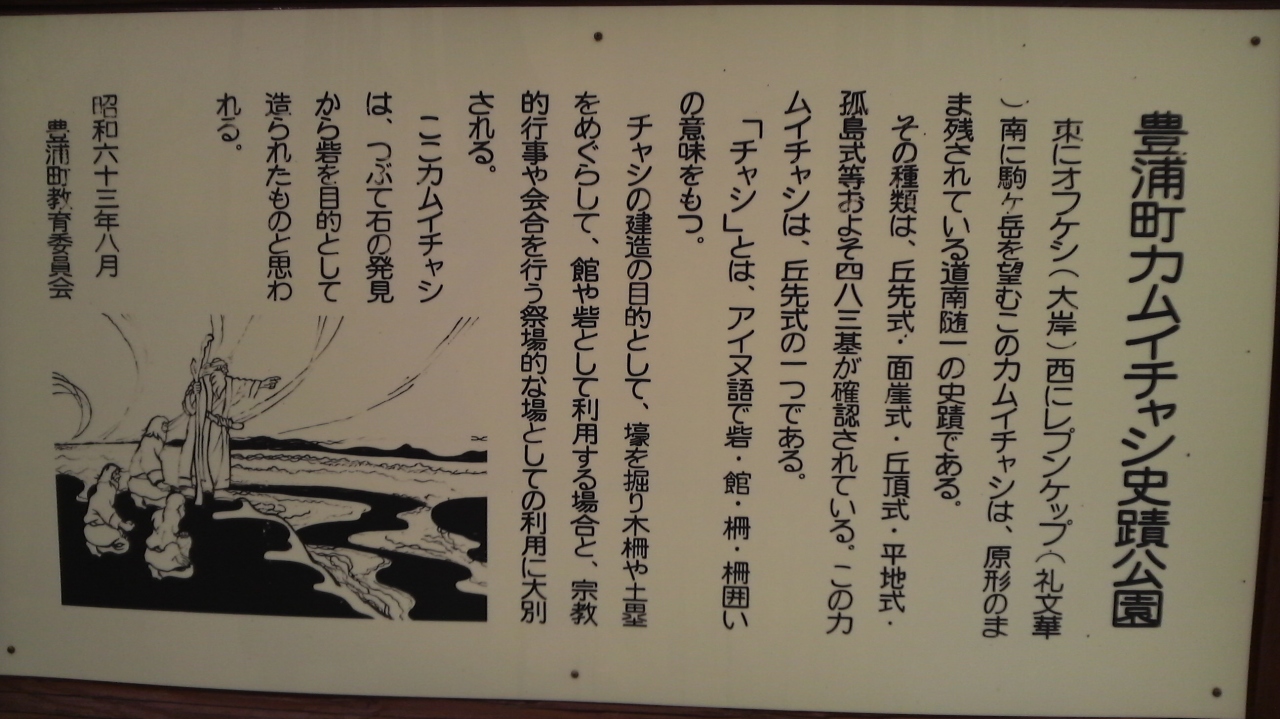 豊浦町カムイチャシ史蹟公園
東にオフケシ（大岸）西にレブンケップ（礼文華
）南に駒ヶ岳を望むこのカムイチャシは、原形のま
ま残されている道南随一の史蹟である。
その種類は、丘先式・面崖式・丘頂式・平地式・
孤島式等およそ四八三基が確認されている。このカ
ムイチャシは、丘先式の一つである。
「チャシ」とは、アイヌ語で砦・館・柵・柵囲い
の意味をもつ。
チャシの建造の目的として、壕を掘り木柵や土塁
をめぐらして、館や砦として利用する場合と、宗教
的行事や会合を行う祭場的な場としての利用に大別
される。
ここカムイチャシ
は、つぶて石の発見
から砦を目的として
造られたものと思わ
れる。
昭和六十三年八月
豊浦町教育委員会